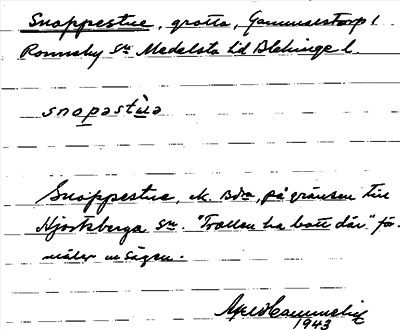 Snappestue, grotta, Gammalstorp,
Ronneby sn Medelsta hd Blekinge l.
snapastùa
Snappestue, N. Bdra, på gränsen till
Hjortsberga sn. "Trollen ha bott där" för-
mäler en sägen.
1943